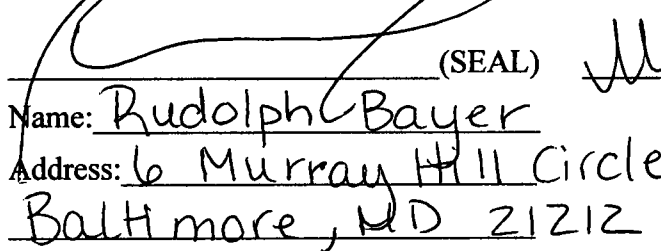 (SEAL)
Name: Rudolph Bayer
Address: 6 Murray Hill Circle
Baltimore, MD 21212